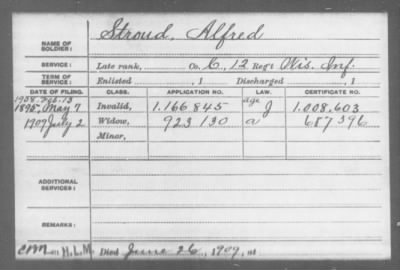 NAME OF SOLDIER: Stroud, Alfred
SERVICE: Late rank, Co. C, 12 Reg't Wis. Inf.
TERM OF SERVICE: Enlisted , 1 Discharged , 1
DATE OF FILING. CLASS. APPLICATION NO. LAW. CERTIFICATE NO.
1908. Feb. 13 age
1895, May 7 Invalid, 1.166.845 J 1.008.603
1909 July 2 Widow, 923 130 a 687396
Minor,
ADDITIONAL SERVICES:
REMARKS:
H.L.M. Died June 26, 1909, at